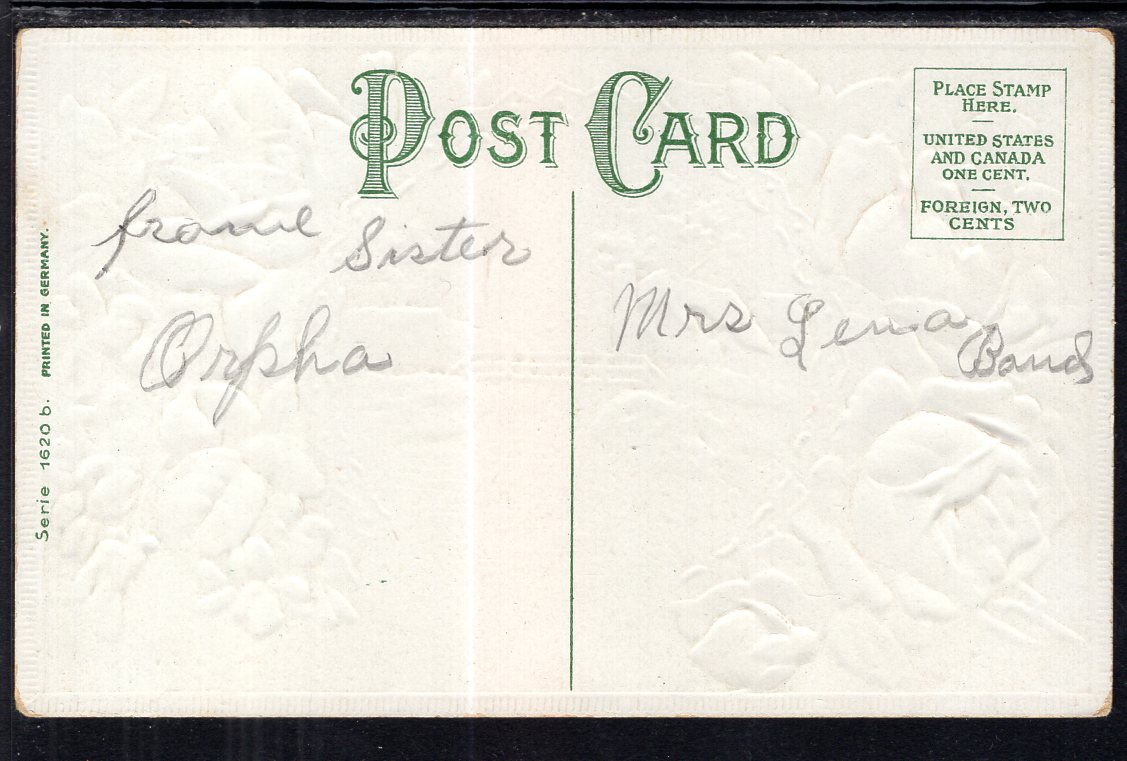 POST CARD
PLACE STAMP
HERE.
UNITED STATES
AND CANADA
ONE CENT.
FOREIGN, TWO
CENTS
Sister
Orpha
Mrs Lena
Serie 1620 b. PRINTED IN GERMANY.